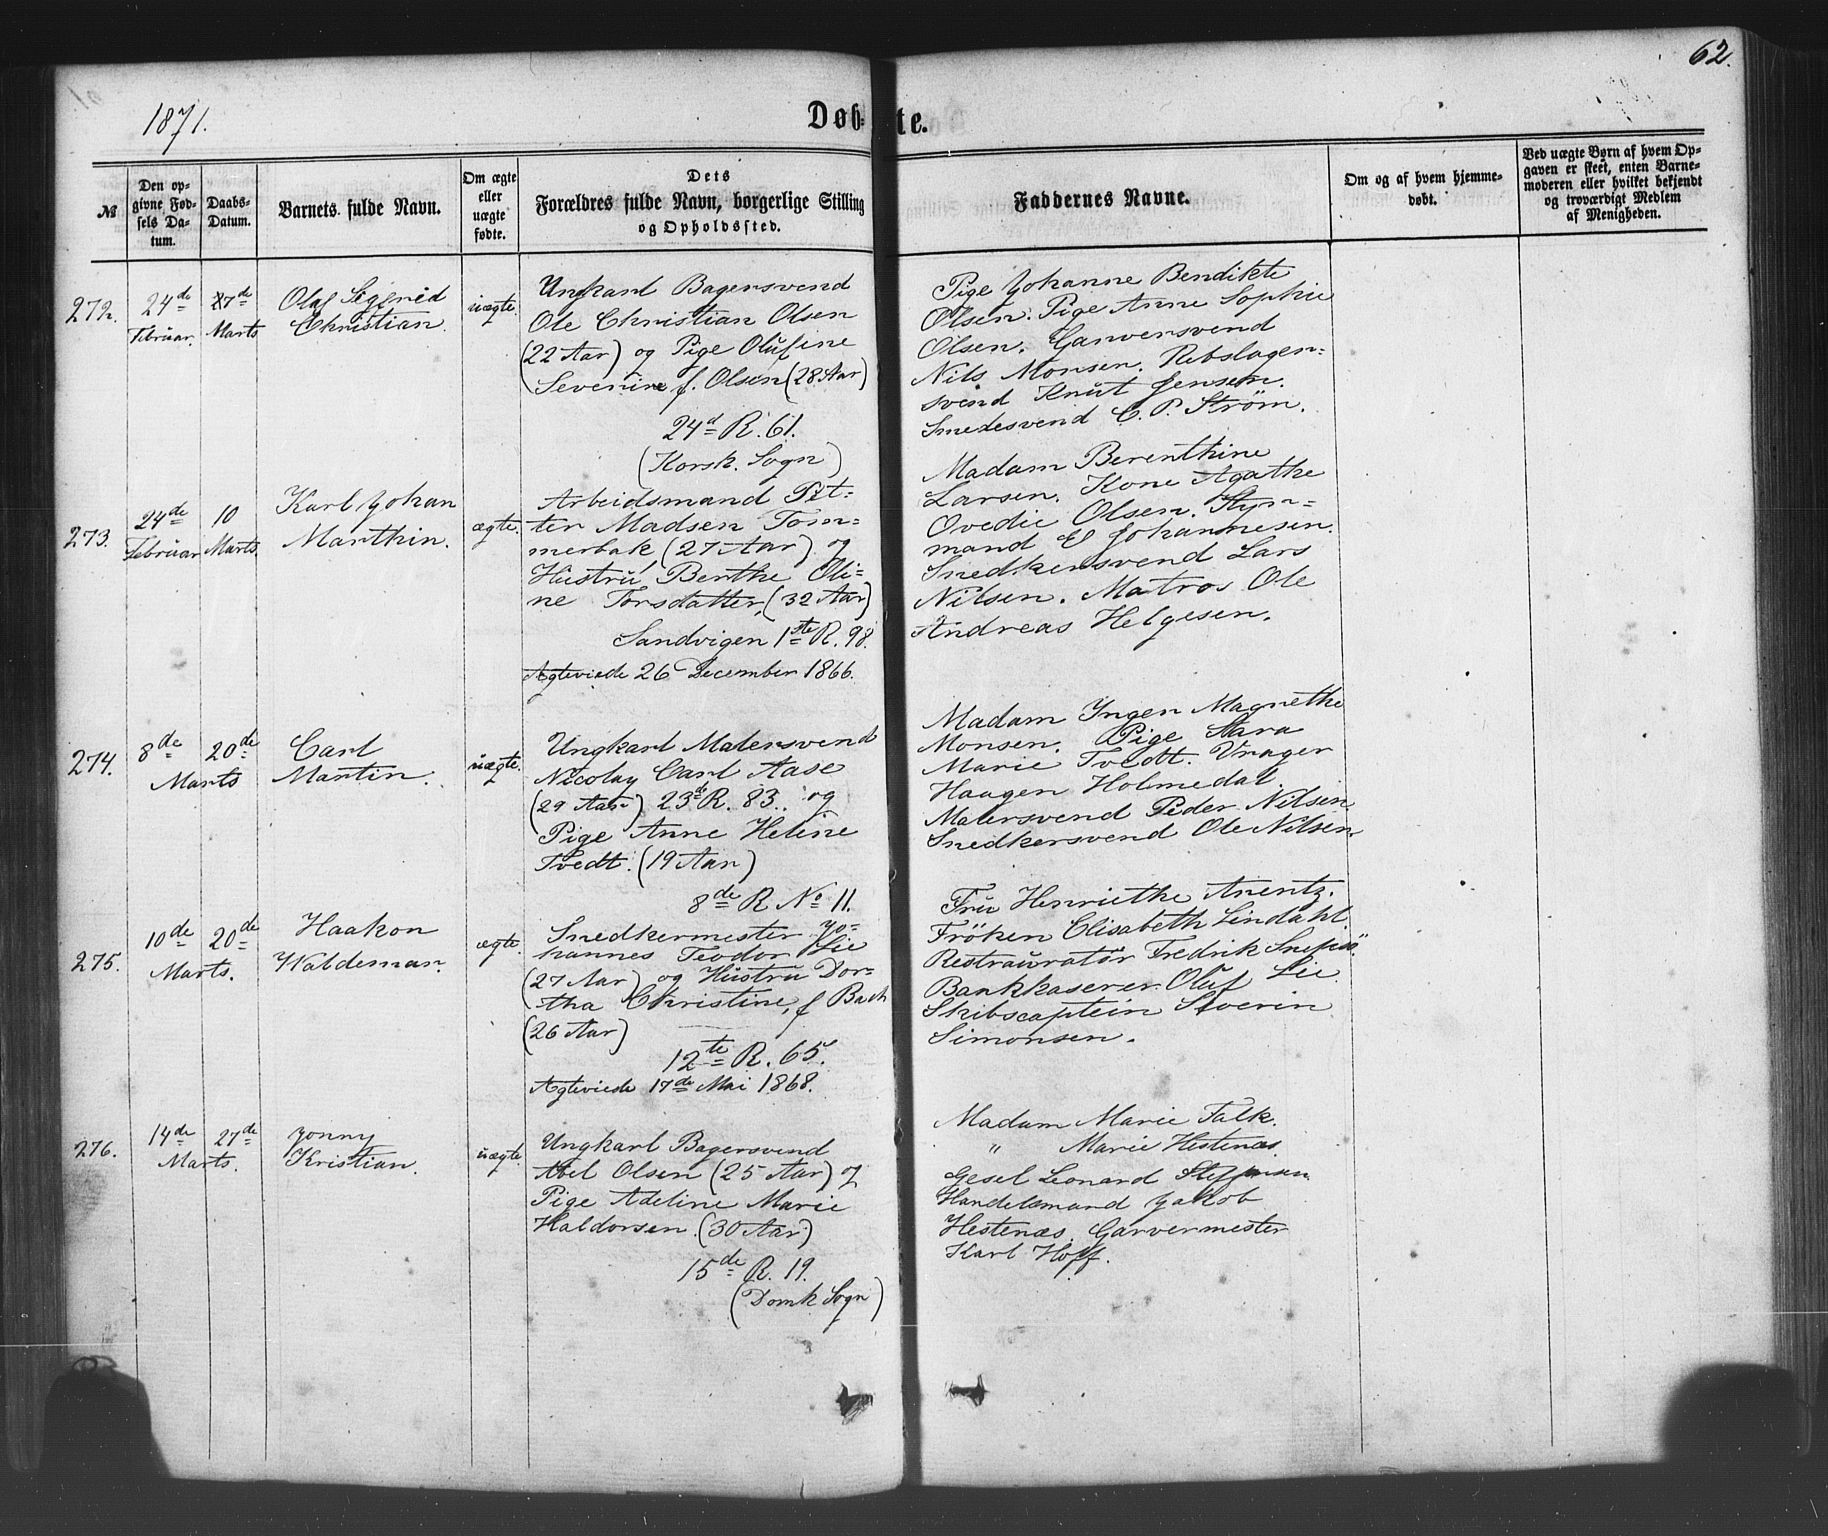 62.
1871.
Døb-te.
№
Den op-
givne Fød-
sels Da-
tum.
Daabs-
Datum.
Barnets fulde Navn.
Om ægte
eller
uægte
fødte.
Dets
Forældres fulde Navn, borgerlige Stilling
og Opholdssted.
Faddernes Navne.
Om og af hvem hjemme-
døbt.
Ved uægte Børn af hvem Op-
gaven er skeet, enten Barne-
moderen eller hvilket bekjendt
og troværdigt Medlem
af Menigheden.
272.
24de
Februar.
7de
Marts
Olaf Sigfried
Christian.
uægte.
Ungkarl Bagersvend
Ole Christian Olsen
(22 Aar) og Pige Olufine
Severine f. Olsen (28 Aar)
24d R. 61.
(Korsk. Sogn)
Pige Johanne Bendikte
Olsen. Pige Anne Sophie
Olsen. Garversvend
Nils Monsen. Rebslager-
svend Knut Jensen.
Smedesvend C. P. Strøm.
273.
24de
Februar
10
Marts.
Karl Johan
Marthin.
ægte.
Arbeidsmand Pet-
ter Madsen Tom-
merbak (27 Aar) og
Hustru, Berthe Oli-
ne Torsdatter, (32 Aar)
Sandvigen 1ste R. 98.
Ægteviede 26 December 1866.
Madam Berenthine
Larsen. Kone Agathe
Ovedie Olsen. Styr-
mand E Johannesen.
Snedkersvend Lars
Nilsen. Matros Ole
Andreas Helgesen.
274.
8de
20de
Marts
Carl
Martin.
uægte.
Ungkarl Malersvend
Nicolay Carl Aase
(29 Aar) 23d R. 83. og
Pige Anne Heline
Tvedt. (19 Aar)
8de R No 11.
Madam Ingen Magrethe
Monsen. Pige Sara
Marie Tvedt. Vrager
Haagen Holmedal.
Malersvend Peder Nilsen.
Snedkersvend Ole Nilsen.
275.
10de
20de
Marts.
Haakon
Waldemar.
ægte.
Snedkermester Jo-
hannes Teodor Lie
(27 Aar) og Hustru Dor-
tha Christine, f Bach
(26 Aar)
12te R. 65.
Ægteviede 17de Mai 1868.
Fru Henriethe Arentz.
Fröken Elisabeth Lindahl.
Restauratør Fredrik
Bankkaserer Oluf Lie.
Skibscaptein Severin
Simonsen.
276.
14de
27de
Marts.
Jonny
Kristian.
uægte.
Ungkarl Bagersvend
Axel Olsen (25 Aar) og
Pige Adeline Marie
Haldorsen. (30 Aar)
15de R. 19.
(Domk Sogn)
Madam Marie Falk.
" Marie Hestenæs.
Gesel Leonard Steffensen.
Handelsmand Jakob
Hestenæs. Garvermester
Karl Hoff.